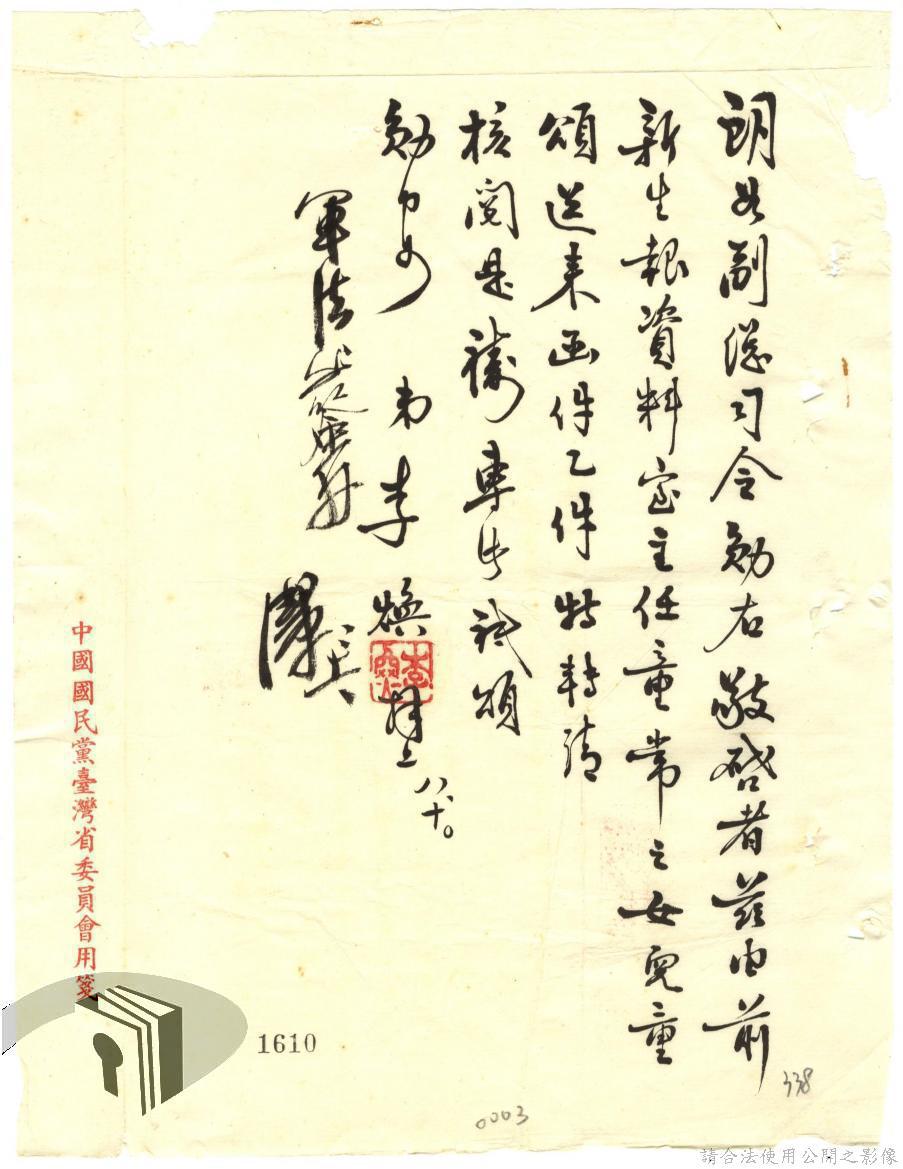 朗如副總司令勛右敬啓者茲由前
新生報資料室主任童常之女兒童
頌送來函件乙件特轉請
核閱是禱專此祗頌
勛安 弟李煥拜上
李煥
八、十。
軍法
中國國民黨臺灣省委員會用箋
1610
0003
338
請合法使用公開之影像